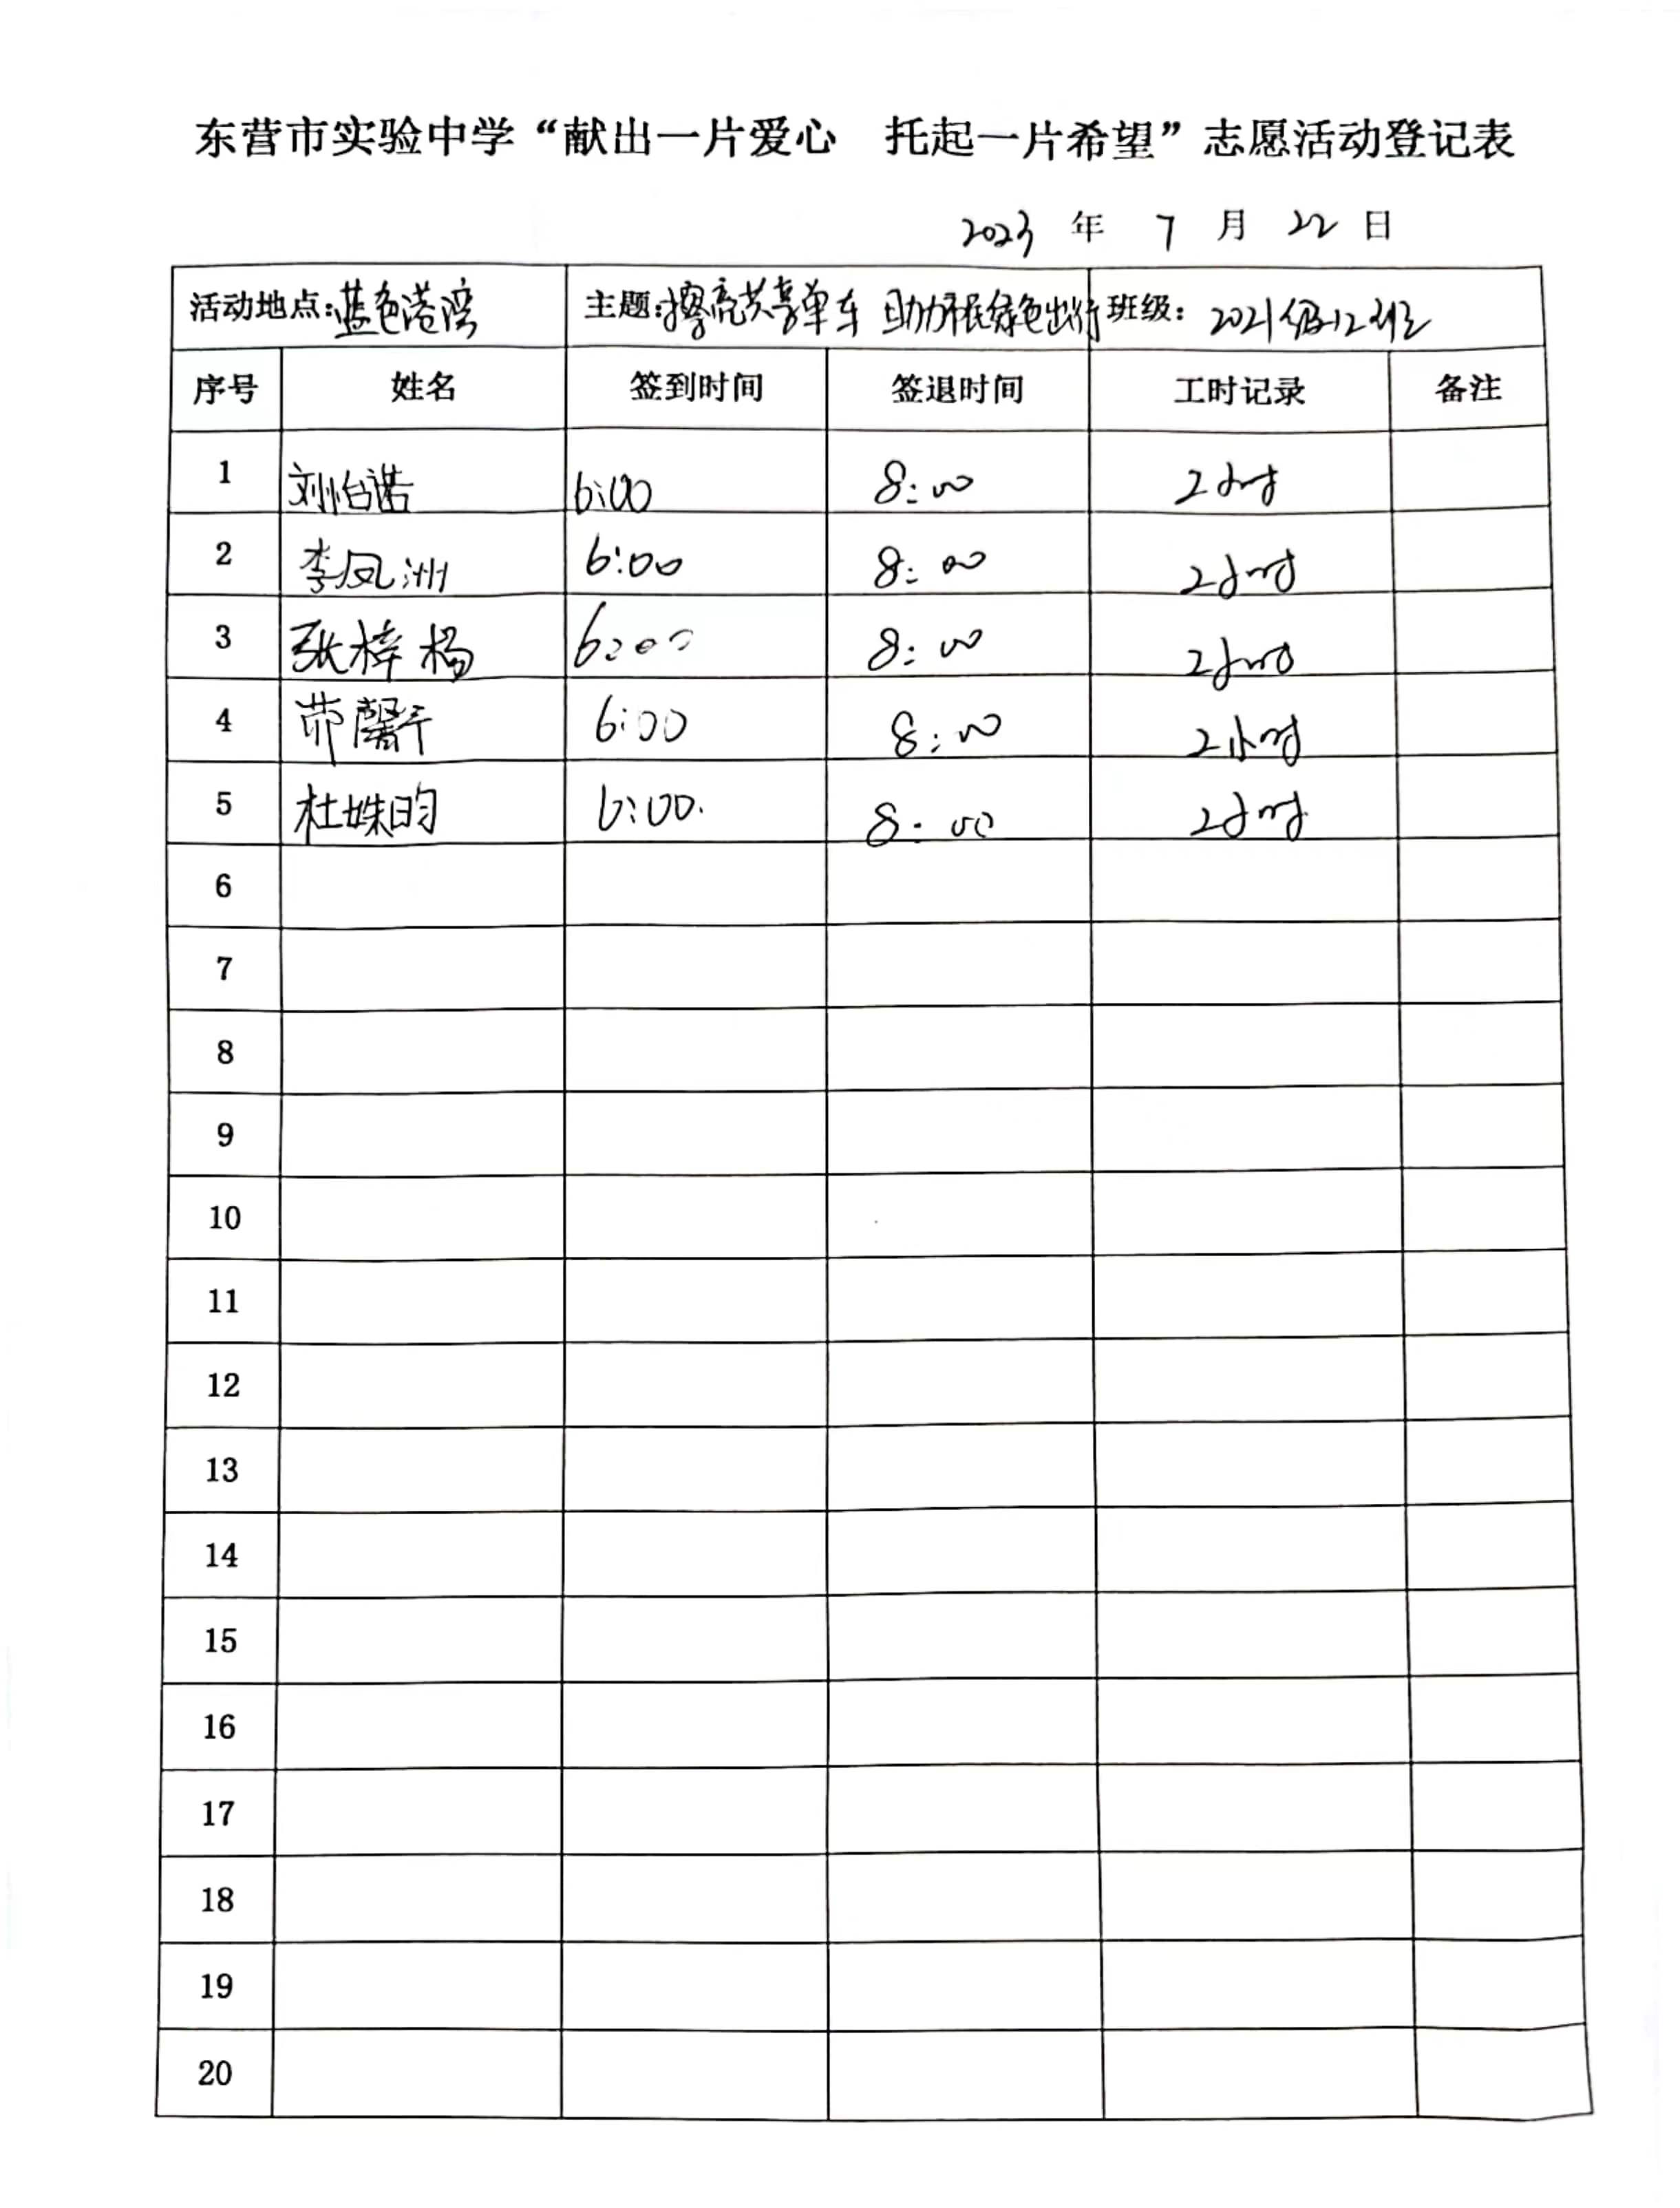 东营市实验中学“献出一片爱心 托起一片希望”志愿活动登记表
2023 年 7 月 22 日
活动地点:蓝色港湾 主题:擦亮共享单车 助力市民绿色出行 班级: 2021级12班
序号 姓名 签到时间 签退时间 工时记录 备注
1 刘怡诺 6:00 8:00 2小时
2 李凤洲 6:00 8:00 2小时
3 张梓杨 6:00 8:00 2小时
4 6:00 8:00 2小时
5 杜姝昀 6:00. 8:00 2小时
6
7
8
9
10
11
12
13
14
15
16
17
18
19
20